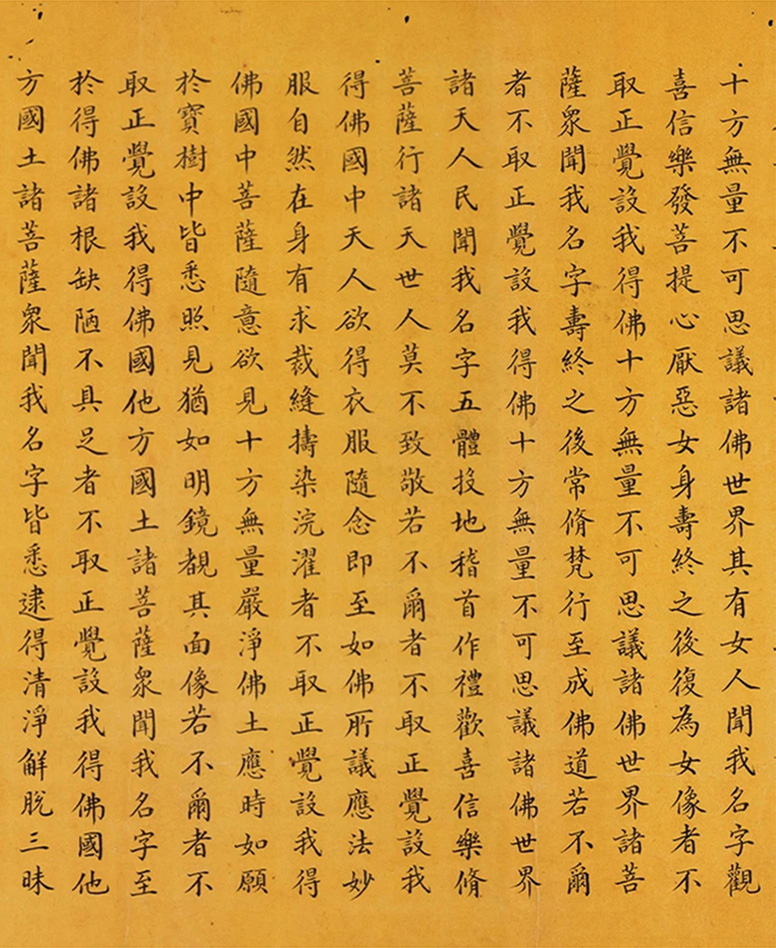 十方無量不可思議諸佛世界其有女人聞我名字觀
喜信樂發菩提心厭惡女身壽終之後復為女像者不
取正覺設我得佛十方無量不可思議諸佛世界諸菩
薩衆聞我名字壽終之後常脩梵行至成佛道若不爾
者不取正覺設我得佛十方無量不可思議諸佛世界
諸天人民聞我名字五體投地稽首作禮歡喜信樂脩
菩薩行諸天世人莫不致敬若不爾者不取正覺設我
得佛國中天人欲得衣服隨念即至如佛所議應法妙
服自然在身有求裁縫擣染浣濯者不取正覺設我得
佛國中菩薩隨意欲見十方無量嚴淨佛土應時如願
於寶樹中皆悉照見猶如明鏡覩其面像若不爾者不
取正覺設我得佛國他方國土諸菩薩衆聞我名字至
於得佛諸根缺陋不具足者不取正覺設我得佛國他
方國土諸菩薩衆聞我名字皆悉逮得清淨解脫三昧